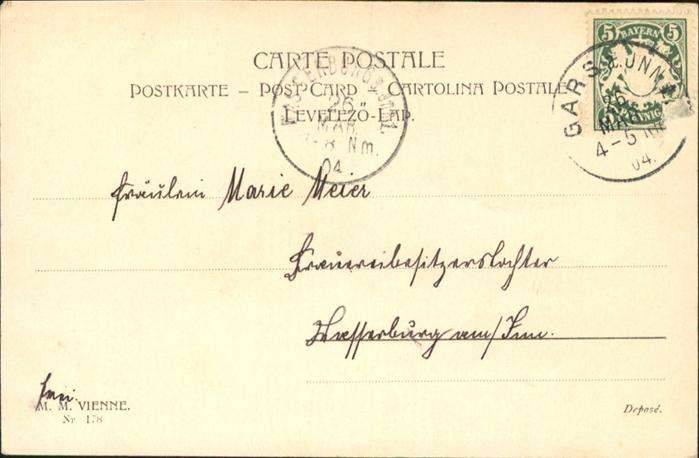 5 BAYERN 5
PFENNIG
CARTE POSTALE
POSTKARTE – POST CARD – CARTOLINA POSTALE
LEVELEZŐ-LAP.
26
MÄR
Nm.
04.
GARS
26
MÄR
4-5 Nm
04.
Fräulein Marie Meier
Brauereibesitzerstochter
Wasserburg am/Inn.
frei.
M. M. VIENNE.
Nr. 178
Deposé.